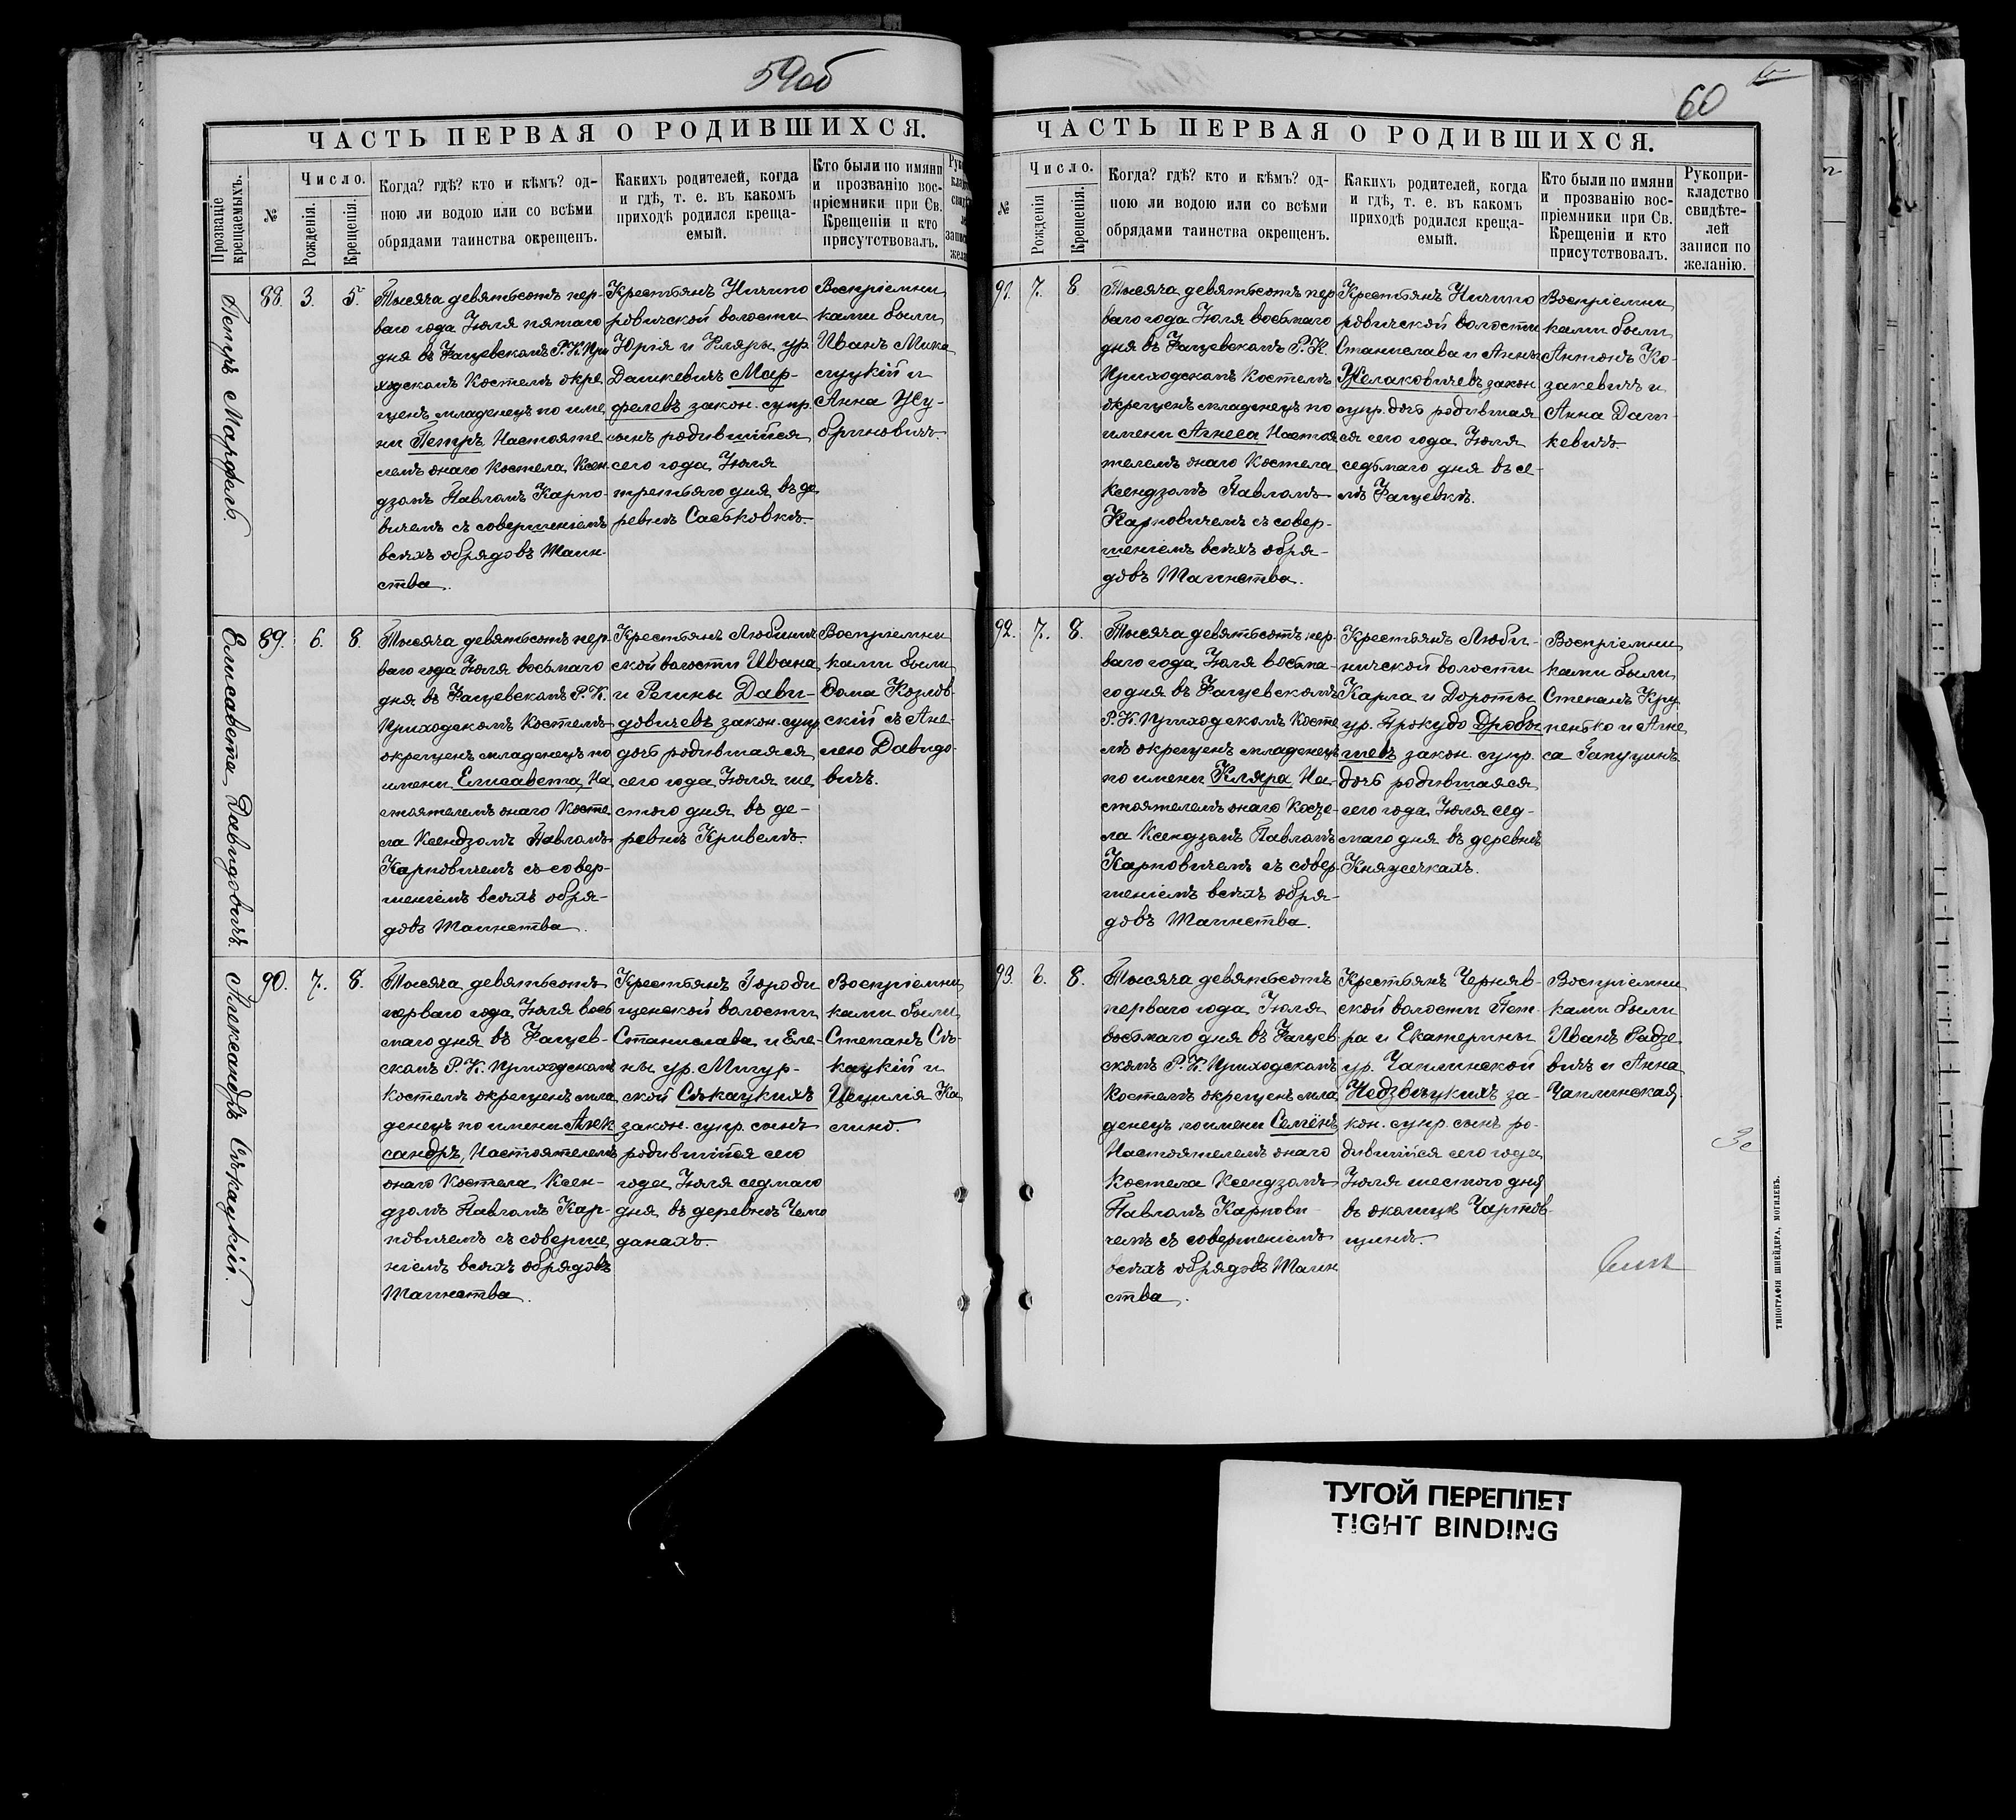 59об
ЧАСТЬ ПЕРВАЯ О РОДИВШИХСЯ.
Прозваніе крещаемыхъ.
№
Число.
Рожденія.
Крещенія.
Когда? гдѣ? кто и кѣмъ? од-
ною ли водою или со всѣми
обрядами таинства окрещенъ.
Какихъ родителей, когда
и гдѣ, т. е. въ какомъ
приходѣ родился креща-
емый.
Кто были по имяни
и прозванію вос-
пріемники при Св.
Крещеніи и кто
присутствовалъ.
Петръ Марфель.
88. 3. 5.
Тысяча девятьсотъ пер-
ваго года Іюля пятаго
дня въ Фащевскомъ Р. К. При
ходскомъ Костелѣ окре
щенъ младенецъ по име
ни Петръ Настояте
лемъ онаго Костела Ксен
дзомъ Павломъ Карпо-
вичемъ съ совершеніемъ
всѣхъ обрядовъ Таин-
ства.
Крестьянъ Ничипо
ровичской волости
Юрія и Кляры ур.
Дашкевичъ Мар-
фелевъ закон. супр.
сынъ родившійся
сего года Іюля
третьяго дня въ де
ревнѣ Саськовкѣ.
Воспріемни
ками были
Иванъ Мика
луцкій и
Анна Жу-
бриновичъ.
Елисавета Давидовичъ.
89. 6. 8.
Тысяча девятьсотъ пер-
ваго года Іюля восьмаго
дня въ Фащевскомъ Р. К.
Приходскомъ Костелѣ
окрещенъ младенецъ по
имени Елисавета На
стоятелемъ онаго Косте
ла Ксендзомъ Павломъ
Карповичемъ съ совер-
шеніемъ всѣхъ обря-
довъ Таинства.
Крестьянъ Любинич
ской волости Ивана
и Регины Дави-
довичевъ закон. супр.
дочь родившаяся
сего года Іюля ше
стого дня въ де-
ревнѣ Кривелѣ.
Воспріемни
ками были
Фома Козлов-
скій съ Ане-
лею Давидо-
вичъ.
Александръ Сѣкацкій.
90. 7. 8.
Тысяча девятьсотъ
перваго года Іюля вось
маго дня въ Фащев-
скомъ Р. К. Приходскомъ
Костелѣ окрещенъ мла
денецъ по имени Алек
сандръ, Настоятелемъ
онаго Костела Ксен-
дзомъ Павломъ Кар-
повичемъ съ соверше
ніемъ всѣхъ обрядовъ
Таинства.
Крестьянъ Городи
щенской волости
Станислава и Еле-
ны ур. Мигур-
ской Сѣкацкихъ
закон. супр. сынъ
родившійся сего
года Іюля седмаго
дня въ деревнѣ Чемо
данахъ.
Воспріемни
ками были
Степанъ Сѣ-
кацкій и
Цецилія Ка
лино.
60
ЧАСТЬ ПЕРВАЯ О РОДИВШИХСЯ.
№
Число.
Рожденія
Крещенія.
Когда? гдѣ? кто и кѣмъ? од-
ною ли водою или со всѣми
обрядами таинства окрещенъ.
Какихъ родителей, когда
и гдѣ, т. е. въ какомъ
приходѣ родился креща-
емый.
Кто были по имяни
и прозванію вос-
пріемники при Св.
Крещеніи и кто
присутствовалъ.
Рукопри-
кладство
свидѣте-
лей
записи по
желанію.
91. 7. 8.
Тысяча девятьсотъ пер
ваго года Іюля восьмаго
дня въ Фащевскомъ Р. К.
Приходскомъ Костелѣ
окрещенъ младенецъ по
имени Агнеса Настоя
телемъ онаго Костела
Ксендзомъ Павломъ
Карповичемъ съ совер-
шеніемъ всѣхъ обря-
довъ Таинства.
Крестьянъ Ничипо
ровичской волости
Станислава и Анны
Желаковичевъ закон.
супр. дочь родившая
ся сего года Іюля
седьмаго дня въ се-
лѣ Фащевкѣ.
Воспріемни
ками были
Антонъ Ко-
закевичъ и
Анна Даш-
кевичъ.
92. 7. 8.
Тысяча девятьсотъ пер-
ваго года Іюля восьма-
го дня въ Фащевскомъ
Р. К. Приходскомъ Косте
лѣ окрещенъ младенецъ
по имени Кляра На-
стоятелемъ онаго Косте-
ла Ксендзомъ Павломъ
Карповичемъ съ совер-
шеніемъ всѣхъ обря-
довъ Таинства.
Крестьянъ Люби-
ничской волости
Карла и Дороты
ур. Прокудо Дробы
шевъ закон. супр.
дочь родившаяся
сего года Іюля сед-
маго дня въ деревнѣ
Княжечкахъ.
Воспріемни
ками были
Степанъ Кру
пенько и Агне
са Гапуцинъ.
93. 6. 8.
Тысяча девятьсотъ
перваго года Іюля
восьмаго дня въ Фащев
скомъ Р. К. Приходскомъ
Костелѣ окрещенъ мла
денецъ по имени Семёнъ
Настоятелемъ онаго
Костела Ксендзомъ
Павломъ Карпови-
чемъ съ совершеніемъ
всѣхъ обрядовъ Таин
ства.
Крестьянъ Черняв-
ской волости Пет-
ра и Екатерины
ур. Чаплинской
Недзвѣцкихъ за-
кон. супр. сынъ ро-
дившійся сего года
Іюля шестого дня
въ околицѣ Чартов-
щинѣ.
Воспріемни
ками были
Иванъ Радзе
вичъ и Анна
Чаплинская.
ТИПОГРАФІЯ ШНЕЙДЕРА. МОГИЛЕВЪ.
ТУГОЙ ПЕРЕПЛЕТ
TIGHT BINDING